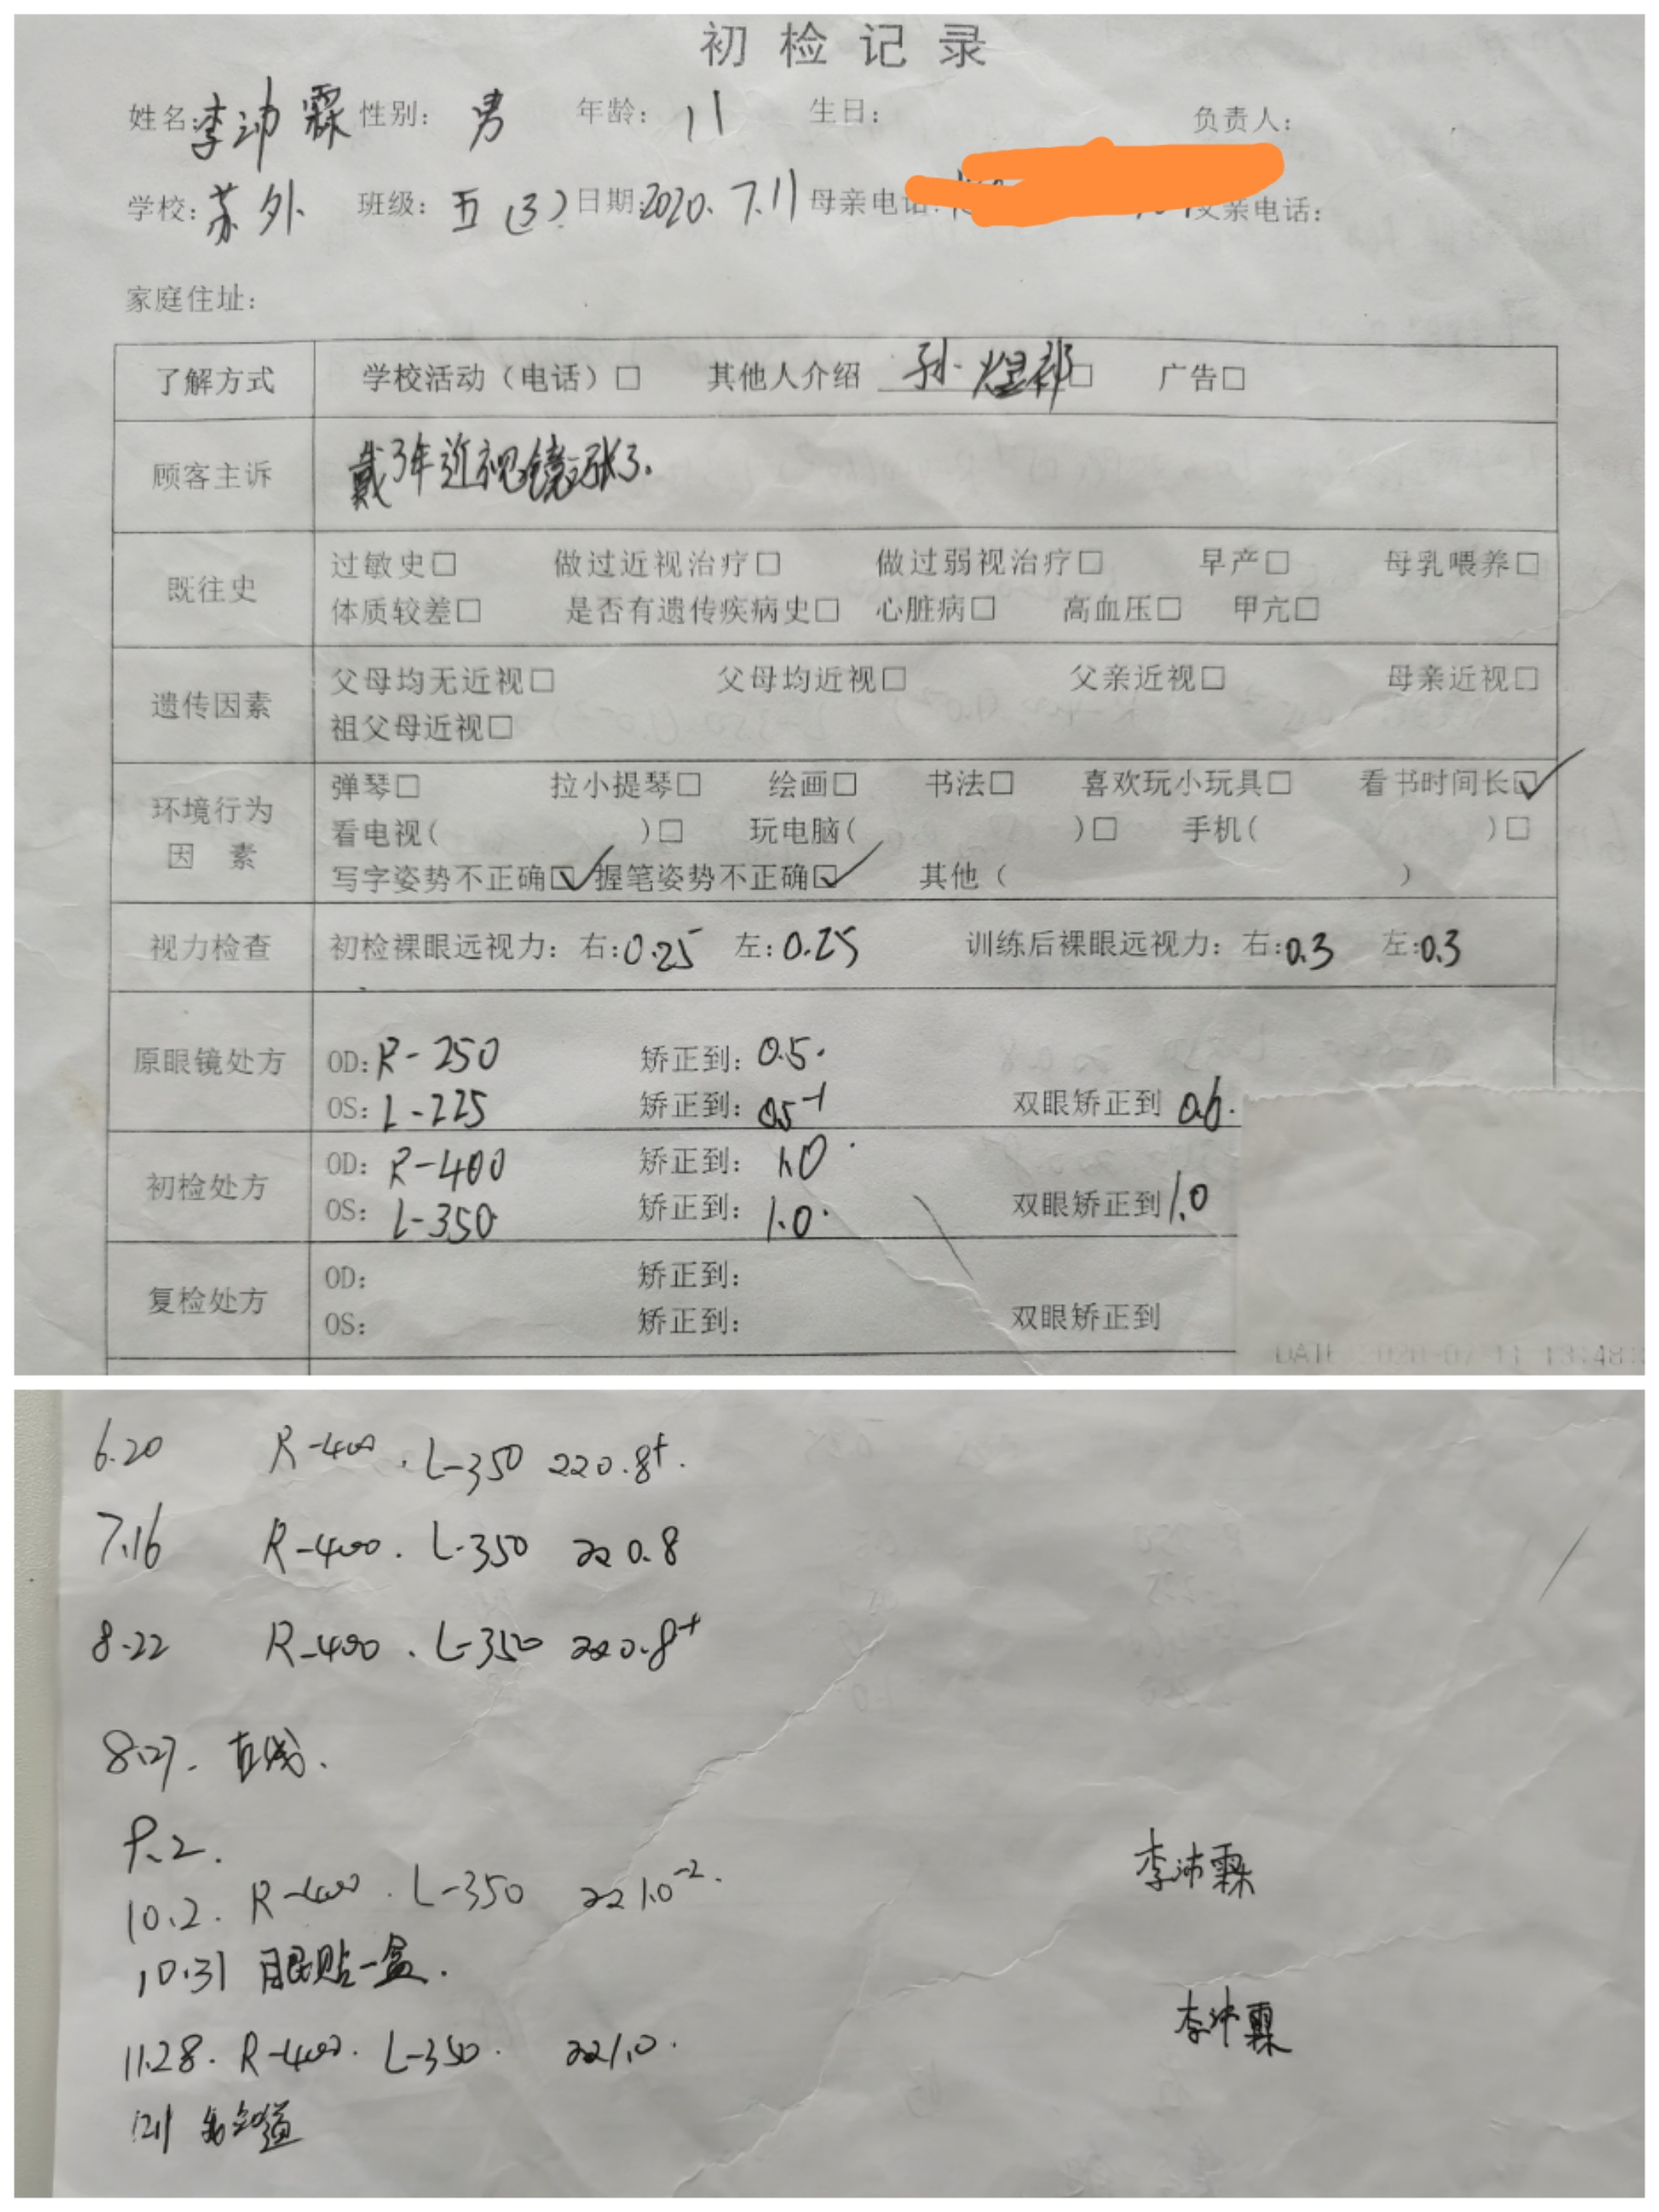 初检记录
姓名:李沛霖 性别: 男 年龄: 11 生日: 负责人:
学校:苏外 班级: 五(3) 日期:2020.7.11 母亲电话: 父亲电话:
家庭住址:
了解方式 学校活动(电话)□ 其他人介绍 孙 □ 广告□
顾客主诉 戴3年近视镜涨了.
既往史 过敏史□ 做过近视治疗□ 做过弱视治疗□ 早产□ 母乳喂养□
体质较差□ 是否有遗传疾病史□ 心脏病□ 高血压□ 甲亢□
遗传因素 父母均无近视□ 父母均近视□ 父亲近视□ 母亲近视□
祖父母近视□
环境行为因素 弹琴□ 拉小提琴□ 绘画□ 书法□ 喜欢玩小玩具□ 看书时间长☑
看电视( )□ 玩电脑( )□ 手机( )□
写字姿势不正确☑ 握笔姿势不正确☑ 其他( )
视力检查 初检裸眼远视力: 右:0.25 左:0.25 训练后裸眼远视力: 右:0.3 左:0.3
原眼镜处方 OD: R-250 矫正到: 0.5.
OS: L-225 矫正到: 0.5-1 双眼矫正到 0.6.
初检处方 OD: R-400 矫正到: 1.0.
OS: L-350 矫正到: 1.0. 双眼矫正到 1.0
复检处方 OD: 矫正到:
OS: 矫正到: 双眼矫正到
DATE 2020-07-11 13:48
6.20 R-400 . L-350 220.8+.
7.16 R-400. L-350 220.8
8.22 R-400 . L-350 220.8+
8.27. 在线.
9.2.
10.2. R-400 . L-350 221.0-2. 李沛霖
10.31 眼贴一盒.
11.28. R-400. L-350. 221.0. 李沛霖
12.1 知道